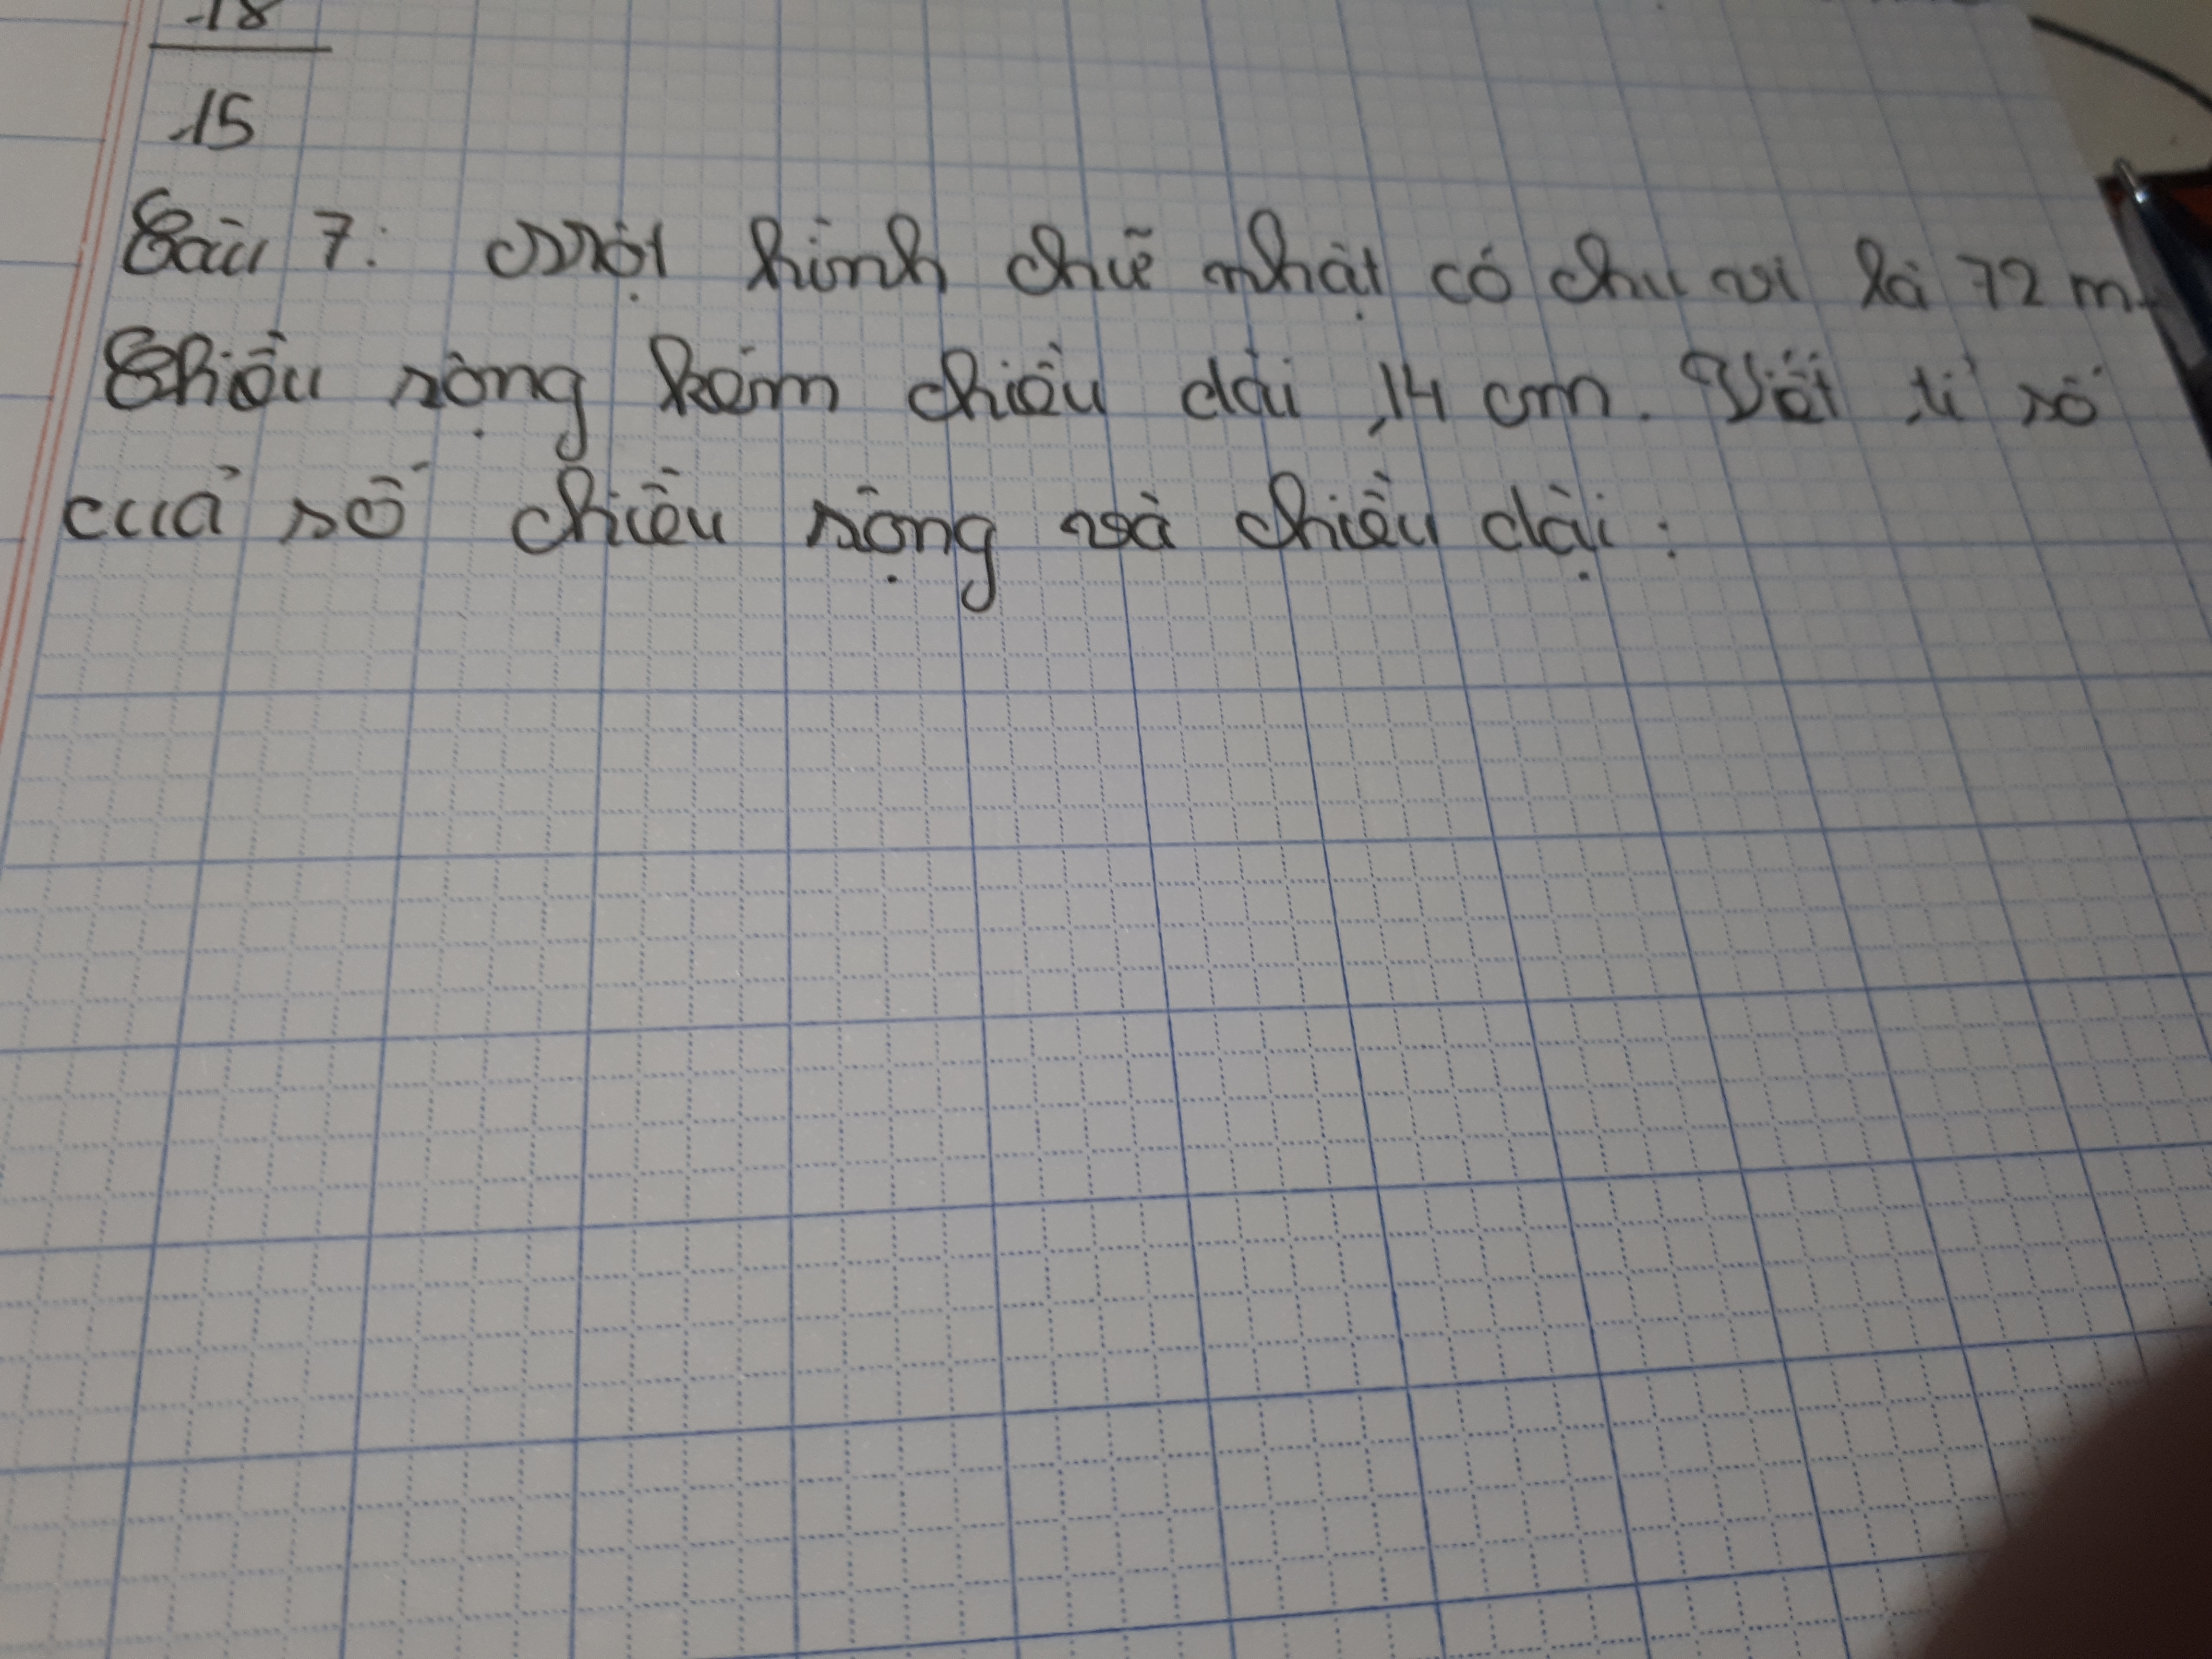 18
15
Câu 7: Một hình chữ nhật có chu vi là 72 m.
Chiều rộng kém chiều dài 14 cm. Viết tỉ số
của số chiều rộng và chiều dài: